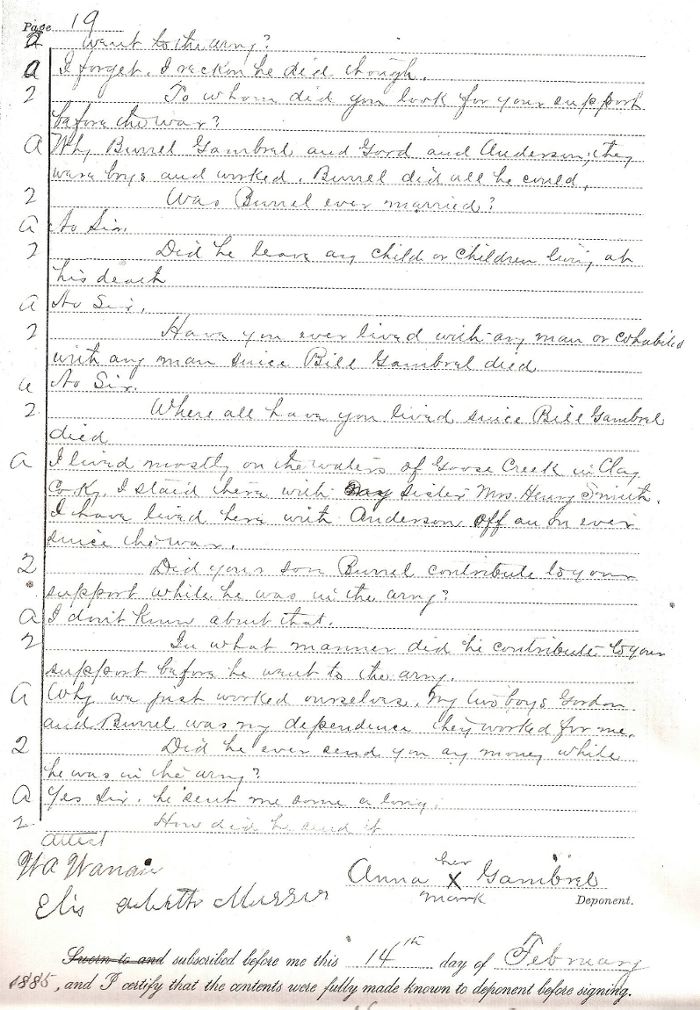 Page 19
Q went to the army?
a I forget. I reckon he did though.
2 To whom did you look for your support
before the war?
a Why Burrel Gambrel and Gord and Anderson, they
ware boys and worked. Burrel did all he could.
2 Was Burrel ever married?
a No Sir.
2 Did he leave any child or children living at
his death
a No Sir.
2 Have you ever lived with any man or cohabited
with any man since Bill Gambrel died
a No Sir.
2 Where all have you lived since Bill Gambrel
died
a I lived mostly on the waters of Goose Creek in Clay
Co Ky. I staid there with my sister Mrs. Henry Smith.
I have lived here with Anderson off an on ever
since the war.
2 Did your son Burrel contribute to your
support while he was in the army?
a I don't know about that.
2 In what manner did he contribute to your
support before he went to the army.
a Why we just worked ourselves. My two boys Gordon
and Burrel was my dependence they worked for me.
2 Did he ever send you any money while
he was in the army?
a Yes Sir. he sent me some along.
2 How did he send it
Attest
W A
her
Anna X Gambrel
mark
Deponent.
Sworn to and subscribed before me this 14th day of February
1885, and I certify that the contents were fully made known to deponent before signing.